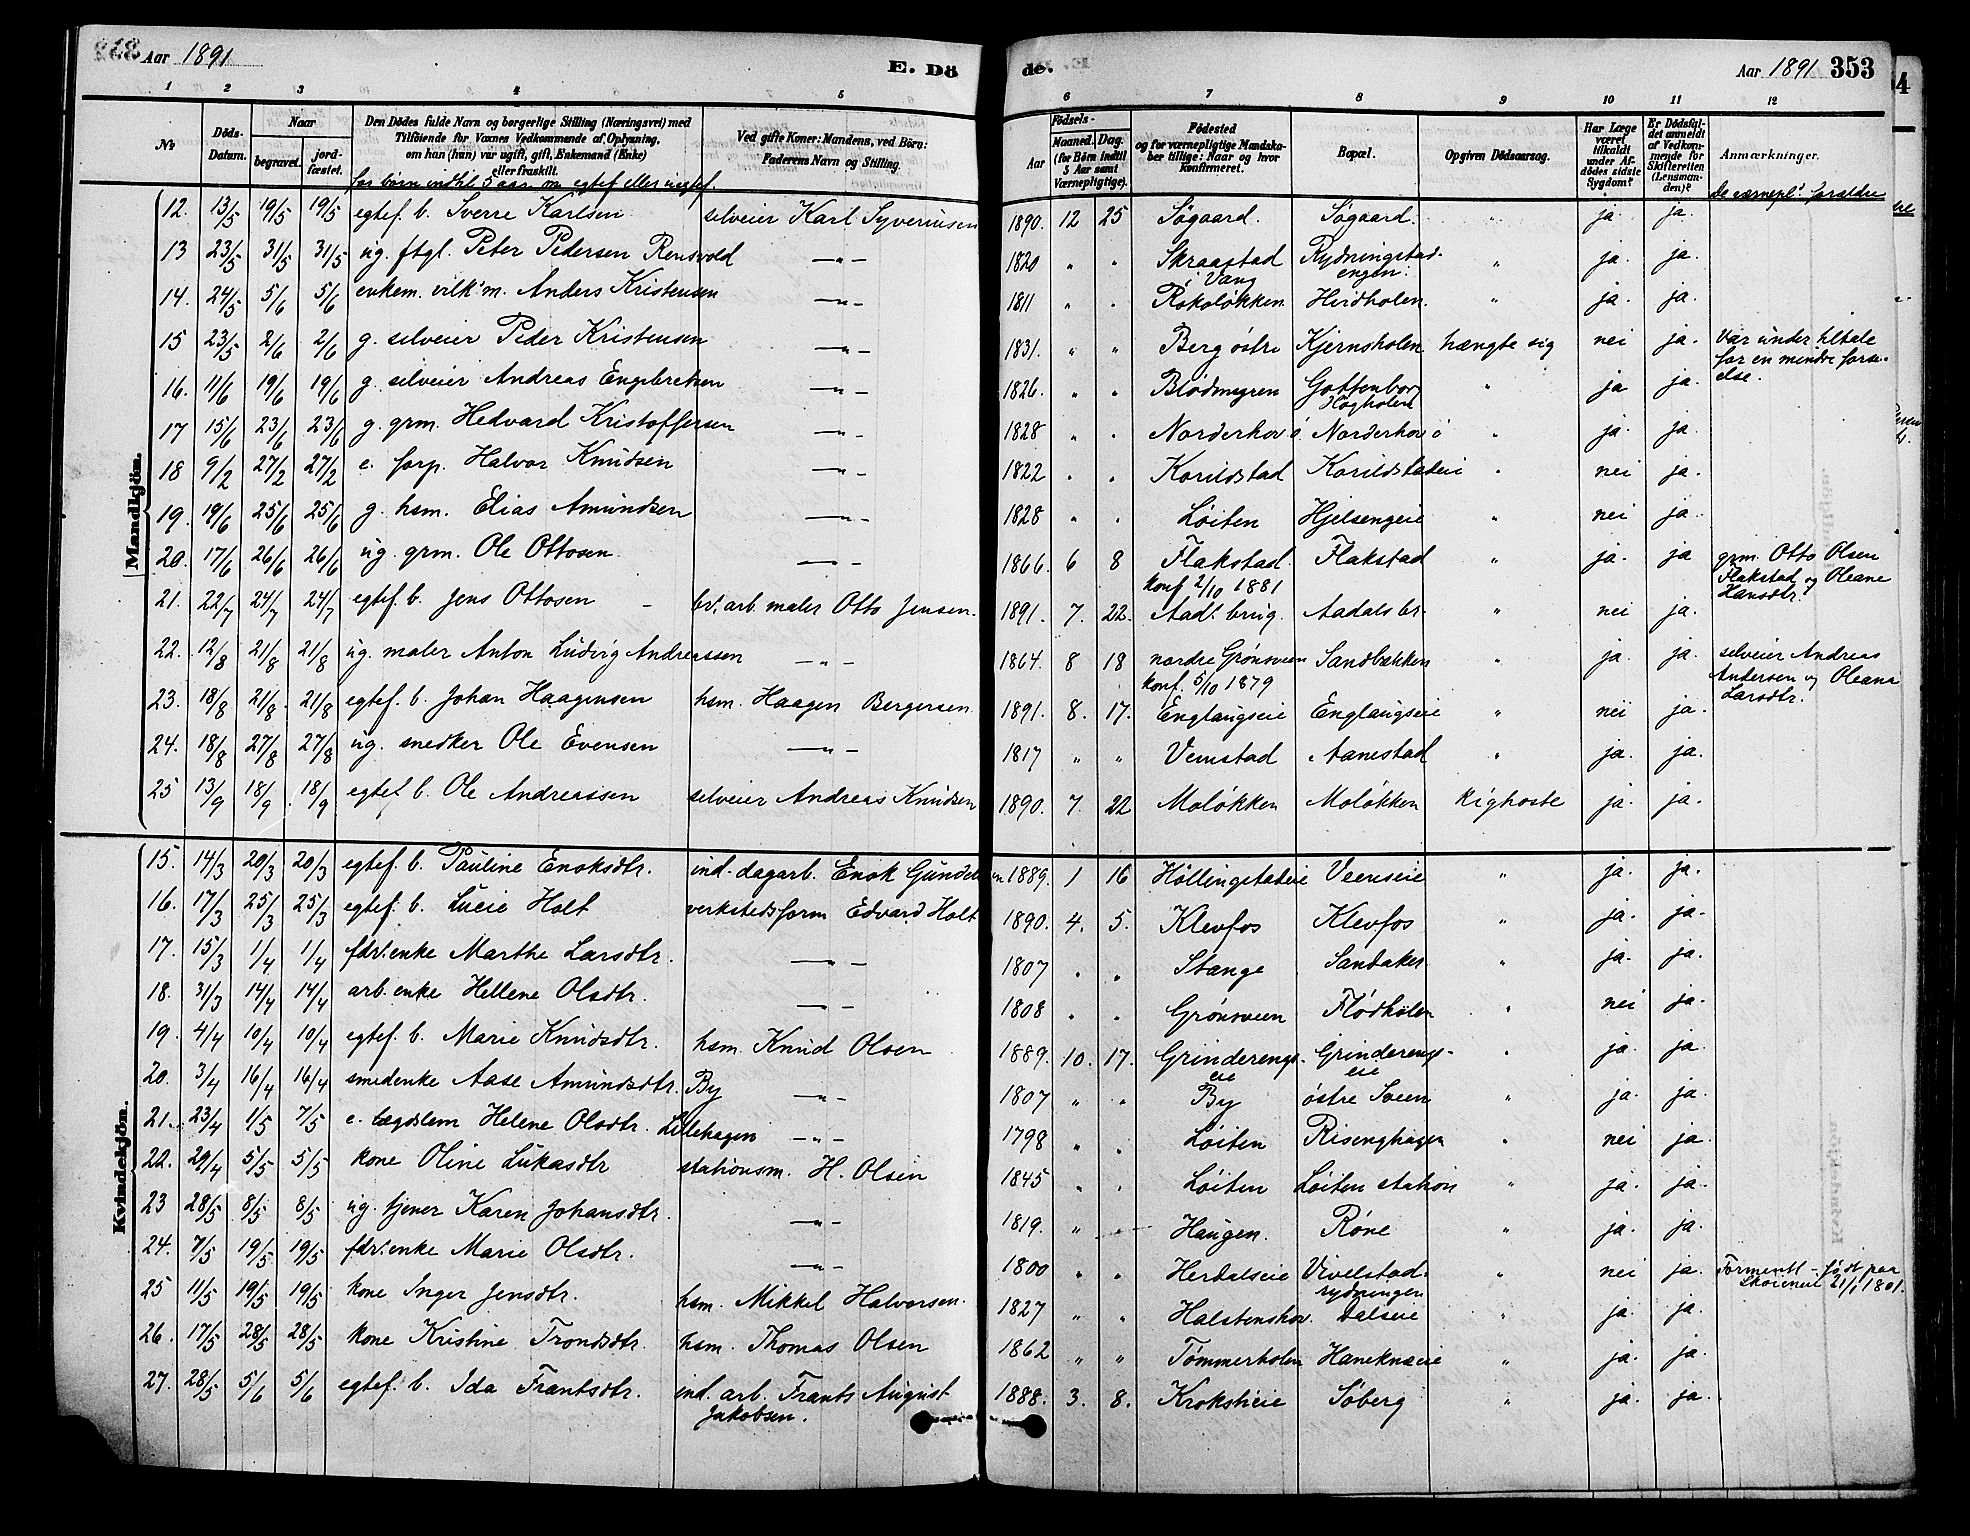 Aar 1891
E. Dö
de.
Aar 1891 353
1 2 3 4 5 6 7 8 9 10 11 12
№ Döds-Datum. Naar begravet. jordfæstet. Den Dödes fulde Navn og borgerlige Stilling (Næringsvei) med Tilföiende for Voxnes Vedkommende af Oplysning, om han (hun) var ugift, gift, Enkemand (Enke) eller fraskilt. Ved gifte Koner: Mandens, ved Börn: Faderens Navn og Stilling. Födsels- Aar Maaned. Dag. (for Börn indtil 5 Aar samt Værnepligtige). Födested og for værnepligtige Mandskaber tillige: Naar og hvor konfirmeret. Bopæl. Opgiven Dödsaarsag. Har Læge været tilkaldt under Afdödes sidste Sygdom? Er Dödsfaldet anmeldt af Vedkommende for Skifteretten (Lensmanden)? Anmærkninger.
for børn indtil 5 aar om egtef eller uegtef.
De værnepl.s forældre
Mandkjön.
12. 13/5 19/5 19/5 egtef. b. Sverre Karlsen selveier Karl Syverinsen 1890. 12 25 Søgaard. Søgaard. " ja ja.
13 23/5 31/5 31/5 ug. ftgl. Peter Pedersen Rensvold —"— 1820 " " Skraastad i Vang Rydningstadengen. " ja. ja.
14. 24/5 5/6 5/6 enkem. vilk:m. Anders Kristensen —"— 1811 " " Røkoløkken Hvidholen. " ja. ja.
15 23/5 2/6 2/6 g. selveier Peder Kristensen —"— 1831. " " Berg østre Kjernsholen hængte sig nei ja. Var under tiltale for en mindre forseelse.
16. 11/6 19/6 19/6 g. selveier Andreas Engebretsen —"— 1826. " " Blødmyren Gottenborg Høgholen " ja ja.
17 15/6 23/6 23/6 g. grm. Hedvard Kristoffersen —"— 1828 " " Norderhov ø Norderhov ø " ja. ja.
18 9/2 27/2 27/2 e. forp. Halvor Knudsen —"— 1822 " " Korildstad Korildstadeie " nei ja.
19. 19/6 25/6 25/6 g. hsm. Elias Amundsen —"— 1828 " " Løiten Hjelsengeie " nei ja.
20. 17/6 26/6 26/6 ug. grm. Ole Ottosen. —"— 1866. 6 8 Flakstad. konf. 2/10 1881 Flakstad " ja. ja grm. Otto Olsen Flakstad og Oleane Hansdtr.
21. 22/7 24/7 24/7 egtef. b. Jens Ottosen br. arb. maler Otto Jensen. 1891. 7. 22. Aadl. brug. Aadals br. " nei ja.
22. 12/8 21/8 21/8 ug. maler Anton Ludvig Andreassen —"— 1864. 8 18 nordre Grønsveen konf. 5/10 1879 Sandbækken " ja. ja. selveier Andreas Andersen og Oleana Larsdtr.
23. 18/8 21/8 21/8 egtef. b. Johan Haagensen hsm. Haagen Bergersen 1891. 8. 17. Englaugseie Englaugseie " nei ja.
24. 18/8 27/8 27/8 ug. snedker Ole Evensen —"— 1817 " " Vemstad Aanestad " ja. ja.
25 13/9 18/9 18/9 egtef b. Ole Andreassen selveier Andreas Knudsen 1890. 7. 22 Moløkken Moløkken kighoste ja. ja.
Kvindekjön.
15. 14/3 20/3 20/3 egtef. b. Pauline Enoksdtr. ind. dagarb. Enok Gundersen 1889. 1 16 Høllingstadeie Veenseie " ja. ja.
16. 17/3 25/3 25/3 egtef. b. Lucie Holt verkstedsform Edvard Holt 1890. 4. 5. Klevfos Klevfos " ja. ja.
17. 15/3 1/4 1/4 fdrl. enke Marthe Larsdtr. —"— 1807 " " Stange Sandaker " ja. ja.
18. 31/3 14/4 14/4 arb. enke Hellene Olsdtr. —"— 1808 " " Grønsveen Flødholen " nei ja.
19. 4/4 10/4 10/4 egtef. b. Marie Knudsdtr. hsm. Knud Olsen 1889. 10. 17. Grinderengseie Grinderengseie " ja. ja.
20. 3/4 16/4 16/4 smedenke Aase Amundsdtr. By —"— 1807 " " By østre Sveen " ja. ja.
21. 23/4 1/5 7/5 e. lægdslem Helene Olsdtr. Lillehagen —"— 1798 " " Løiten Risenghagen " nei ja.
22. 29/4 5/5 5/5 kone Oline Lukasdtr stationsm. H. Olsen 1845 " " Løiten Løiten station " ja. ja.
23 28/5 8/5 8/5 ug. tjener Karen Johansdtr. —"— 1819. " " Haugen. Røne " ja. ja.
24. 7/5 19/5 19/5 fdrl. enke Marie Olsdtr. —"— 1800 " " Herdalseie Vivelstadrydningen " nei ja. Formentl. født paa Skøienei 21/1 1801.
25 11/5 19/5 19/5 kone Inger Jensdtr. hsm. Mikkel Halvorsen. 1827 " " Halstenshov. Dalseie " ja. ja.
26. 17/5 28/5 28/5 kone Kristine Trondsdtr. hsm. Thomas Olsen 1862 " " Tømmerholen Haneknæeie " ja. ja.
27. 28/5 5/6 5/6 egtef. b. Ida Frantsdtr. ind. arb. Frants August Jakobsen. 1888. 3. 8. Kroksheie Søberg " ja. ja